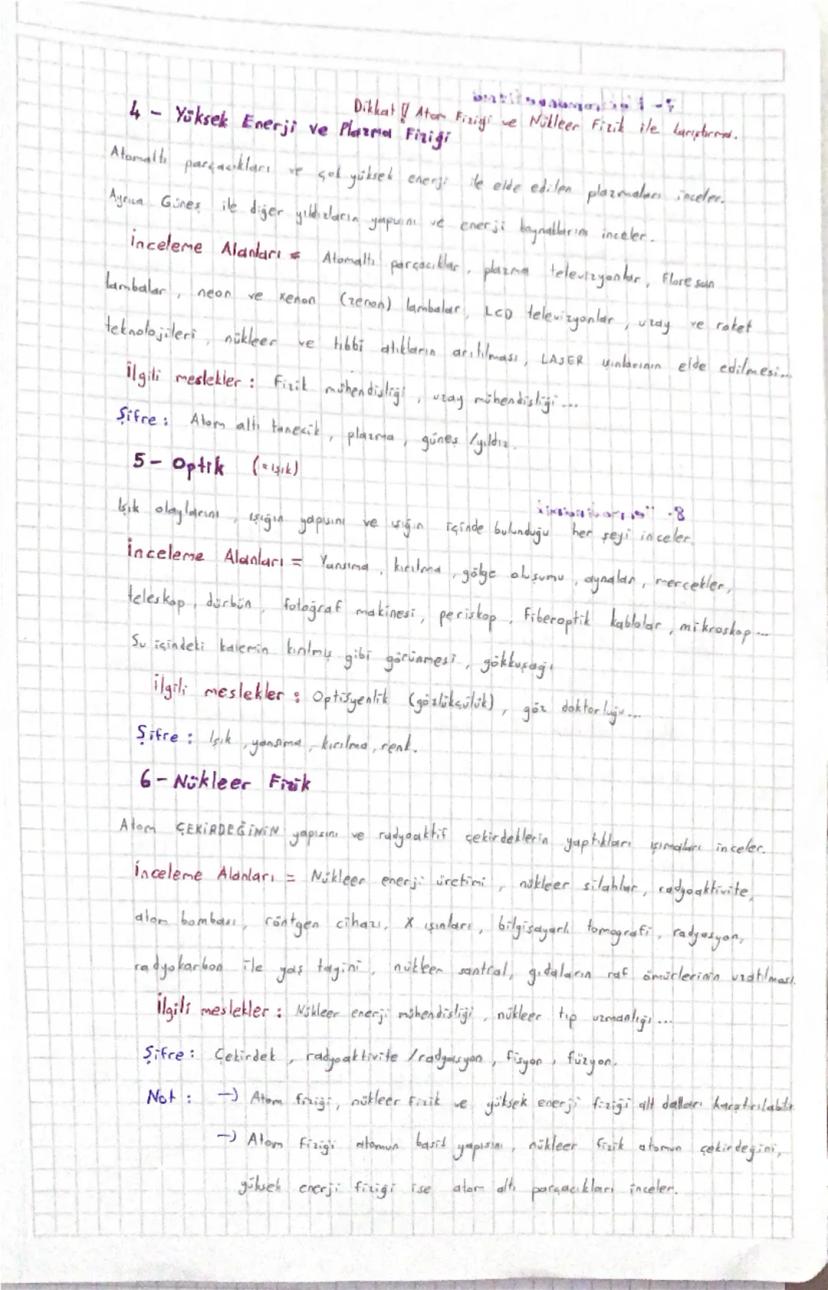 Dikkat !! Atom Fiziği ve Nükleer Fizik ile karıştırma.
4 - Yüksek Enerji ve Plazma Fiziği
Atomaltı parçacıkları ve çok yüksek enerji ile elde edilen plazmaları inceler.
Ayrıca Güneş ile diğer yıldızların yapısını ve enerji kaynaklarını inceler.
İnceleme Alanları = Atomaltı parçacıklar, plazma televizyonlar, Floresan
lambalar, neon ve xenon (zenon) lambalar, LCD televizyonlar, uzay ve roket
teknolojileri, nükleer ve tıbbi atıkların arıtılması, LASER ışınlarının elde edilmesi...
İlgili meslekler : Fizik mühendisliği, uzay mühendisliği...
Şifre : Atom altı tanecik, plazma, güneş /yıldız.
5 - Optik (=ışık)
Işık olaylarını, ışığın yapısını ve ışığın içinde bulunduğu her şeyi inceler.
İnceleme Alanları = Yansıma, kırılma, gölge oluşumu, aynalar, mercekler,
teleskop, dürbün, fotoğraf makinesi, periskop, Fiberoptik kablolar, mikroskop...
Su içindeki kalemin kırılmış gibi görünmesi, gökkuşağı
İlgili meslekler : Optisyenlik (gözlükçülük), göz doktorluğu...
Şifre : Işık, yansıma, kırılma, renk.
6 - Nükleer Fizik
Atom ÇEKİRDEĞİNİN yapısını ve radyoaktif çekirdeklerin yaptıkları ışımaları inceler.
İnceleme Alanları = Nükleer enerji üretimi, nükleer silahlar, radyoaktivite,
atom bombası, röntgen cihazı, X ışınları, bilgisayarlı tomografi, radyasyon,
radyokarbon ile yaş tayini, nükleer santral, gıdaların raf ömürlerinin uzatılması.
İlgili meslekler : Nükleer enerji mühendisliği, nükleer tıp uzmanlığı...
Şifre : Çekirdek, radyoaktivite /radyasyon, fisyon, füzyon.
Not : → Atom fiziği, nükleer fizik ve yüksek enerji fiziği alt dalları karıştırılabilir
→ Atom Fiziği atomun basit yapısını, nükleer fizik atomun çekirdeğini,
yüksek enerji fiziği ise atom altı parçacıkları inceler.